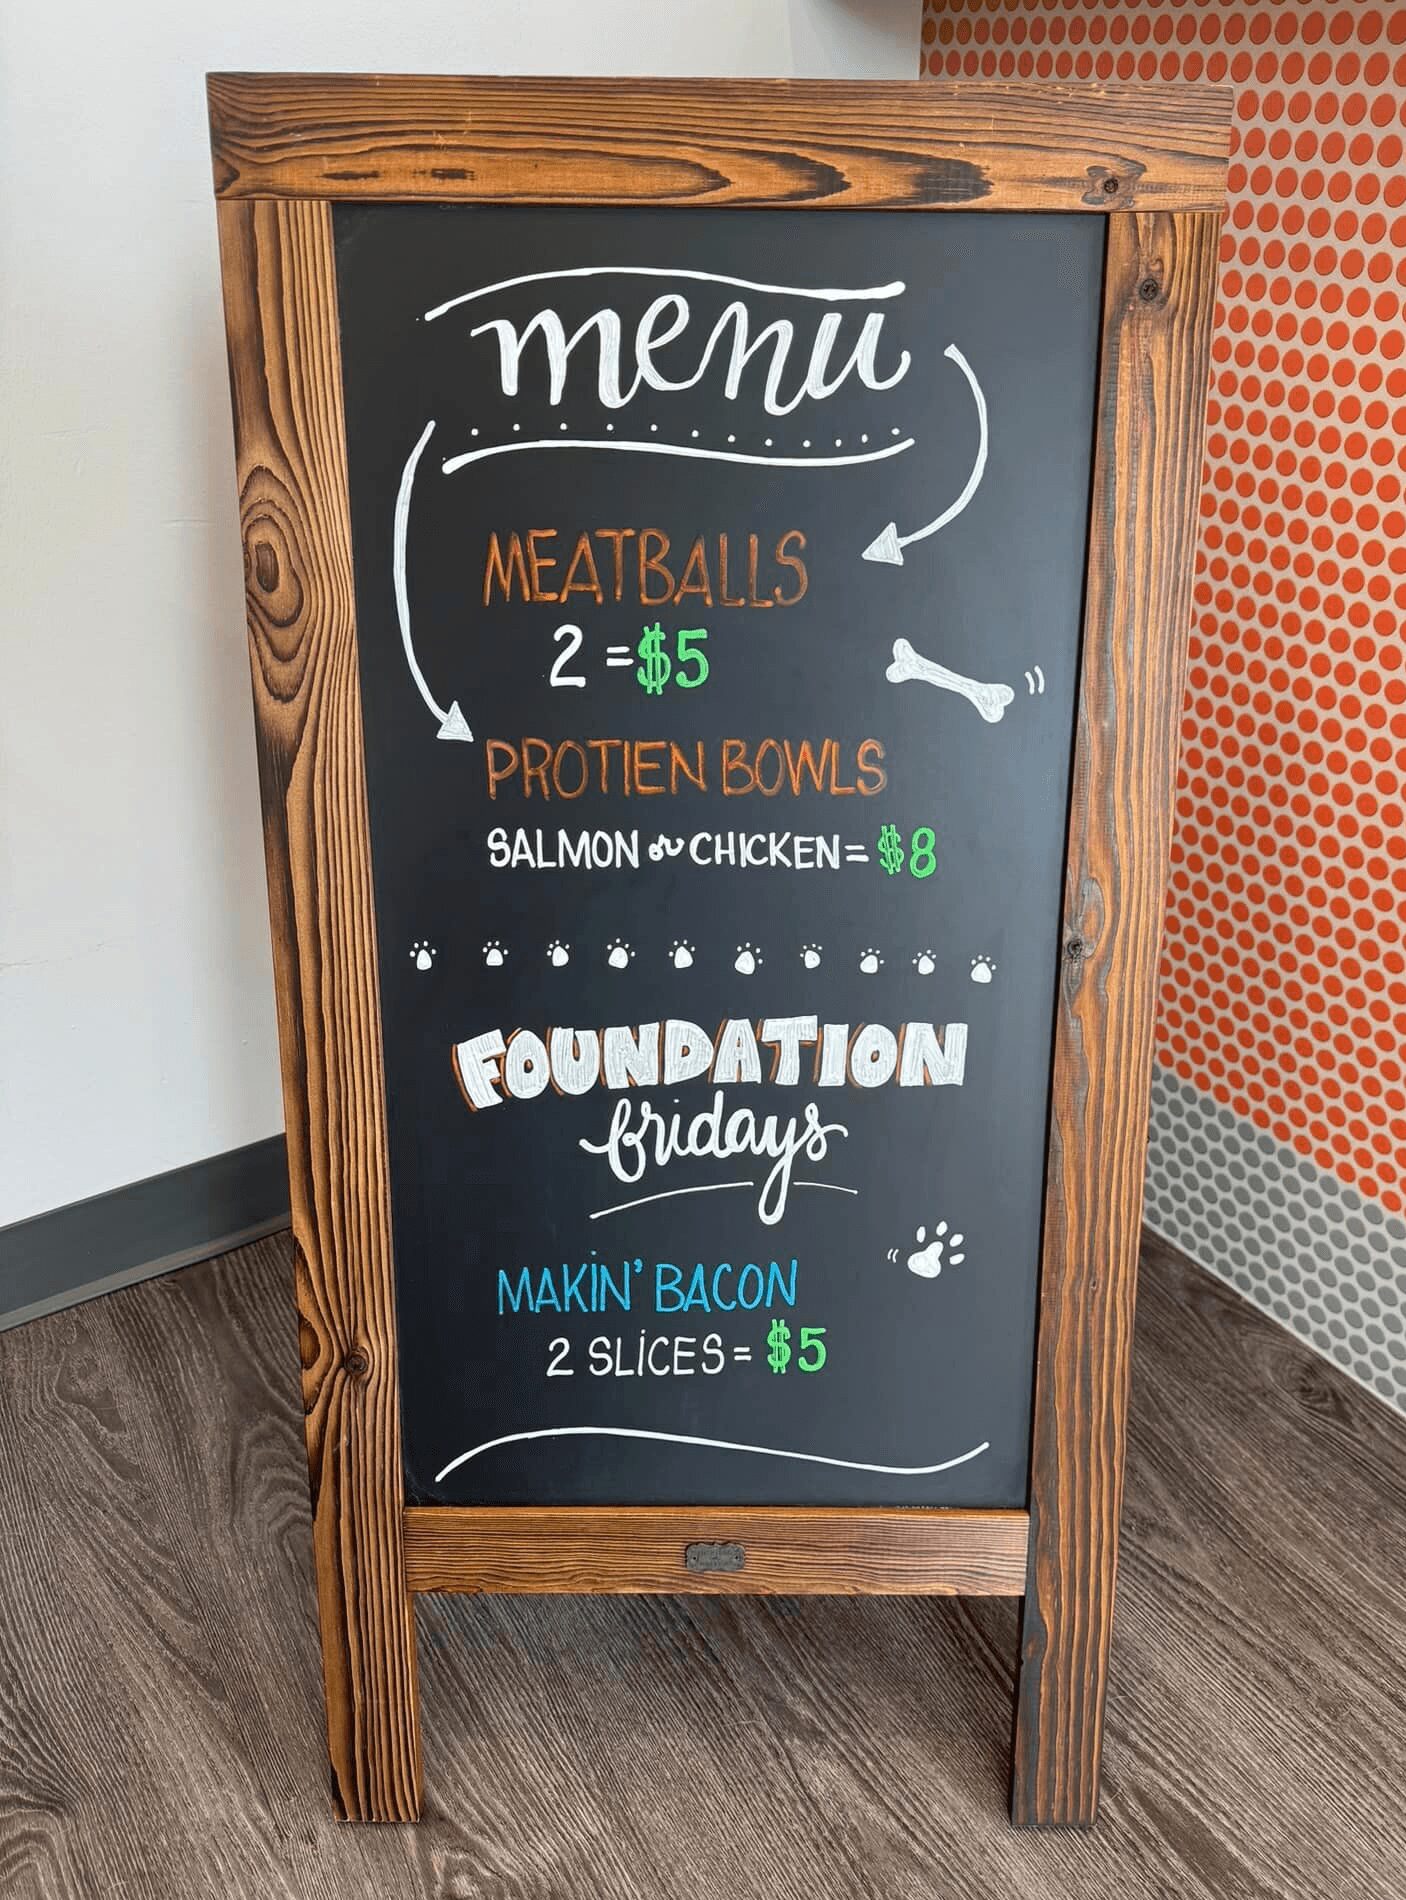 menu
MEATBALLS
2 = $5
PROTIEN BOWLS
SALMON or CHICKEN = $8
FOUNDATION
fridays
MAKIN' BACON
2 SLICES = $5